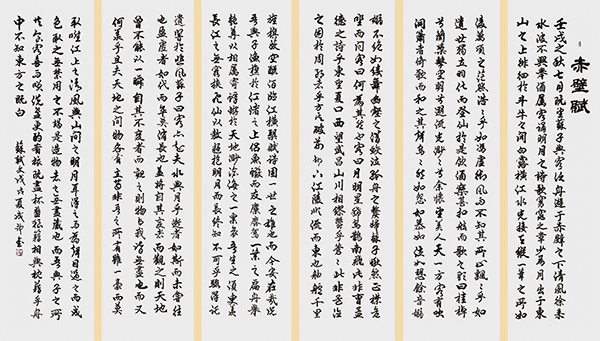 赤壁賦
壬戌之秋七月既望蘇子與客泛舟遊于赤壁之下清風徐來
水波不興舉酒屬客誦明月之詩歌窈窕之章少焉月出于東
山之上徘徊於斗牛之間白露橫江水光接天縱一葦之所如
凌萬頃之茫然浩浩乎如馮虛御風而不知其所止飄飄乎如
遺世獨立羽化而登仙於是飲酒樂甚扣舷而歌之歌曰桂棹
兮蘭槳擊空明兮溯流光渺渺兮余懷望美人兮天一方客有吹
洞簫者倚歌而和之其聲嗚嗚然如怨如慕如泣如訴餘音嫋
嫋不絕如縷舞幽壑之潛蛟泣孤舟之嫠婦蘇子愀然正襟危
坐而問客曰何為其然也客曰月明星稀烏鵲南飛此非曹孟
德之詩乎東望夏口西望武昌山川相繆鬱乎蒼蒼此非孟德
之困於周郎者乎方其破荊州下江陵順流而東也舳艫千里
旌旗蔽空釃酒臨江橫槊賦詩固一世之雄也而今安在哉況
吾與子漁樵於江渚之上侶魚蝦而友麋鹿駕一葉之扁舟舉
匏尊以相屬寄蜉蝣於天地渺滄海之一粟哀吾生之須臾羨
長江之無窮挾飛仙以遨遊抱明月而長終知不可乎驟得託
遺響於悲風蘇子曰客亦知夫水與月乎逝者如斯而未嘗往
也盈虛者如代而卒莫消長也蓋將自其變者而觀之則天地
曾不能以一瞬自其不變者而觀之則物與我皆無盡也而又
何羨乎且夫天地之間物各有主苟非吾之所有雖一毫而莫
取惟江上之清風與山間之明月耳得之而為聲目遇之而成
色取之無禁用之不竭是造物者之無盡藏也而吾與子之所
共食客喜而笑洗盞更酌肴核既盡杯盤狼藉相與枕藉乎舟
中不知東方之既白
蘇軾文戊戌夏